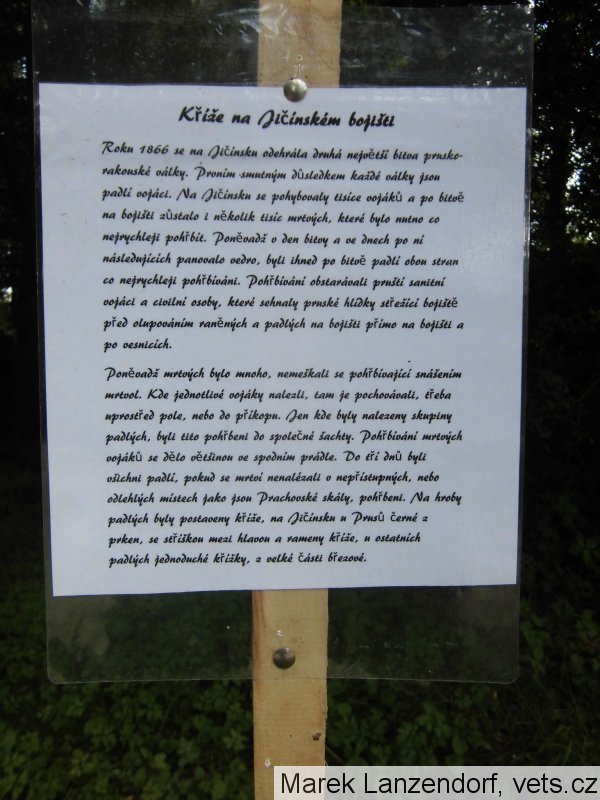 Kříže na Jičínském bojišti
Roku 1866 se na Jičínsku odehrála druhá největší bitva prusko-
rakouské války. Prvním smutným důsledkem každé války jsou
padlí vojáci. Na Jičínsku se pohybovaly tisíce vojáků a po bitvě
na bojišti zůstalo i několik tisíc mrtvých, které bylo nutno co
nejrychleji pohřbít. Poněvadž v den bitvy a ve dnech po ní
následujících panovalo vedro, byli ihned po bitvě padlí obou stran
co nejrychleji pohřbíváni. Pohřbívání obstarávali pruští sanitní
vojáci a civilní osoby, které sehnaly pruské hlídky střežící bojiště
před olupováním raněných a padlých na bojišti přímo na bojišti a
po vesnicích.
Poněvadž mrtvých bylo mnoho, nemeškali se pohřbívající snášením
mrtvol. Kde jednotlivé vojáky nalezli, tam je pochovávali, třeba
uprostřed pole, nebo do příkopu. Jen kde byly nalezeny skupiny
padlých, byli tito pohřbeni do společné šachty. Pohřbívání mrtvých
vojáků se dělo většinou ve spodním prádle. Do tří dnů byli
všichni padlí, pokud se mrtví nenalézali v nepřístupných, nebo
odlehlých místech jako jsou Prachovské skály, pohřbeni. Na hroby
padlých byly postaveny kříže, na Jičínsku u Prusů černé z
prken, se stříškou mezi hlavou a rameny kříže, u ostatních
padlých jednoduché křížky, z velké části březové.
Marek Lanzendorf, vets.cz